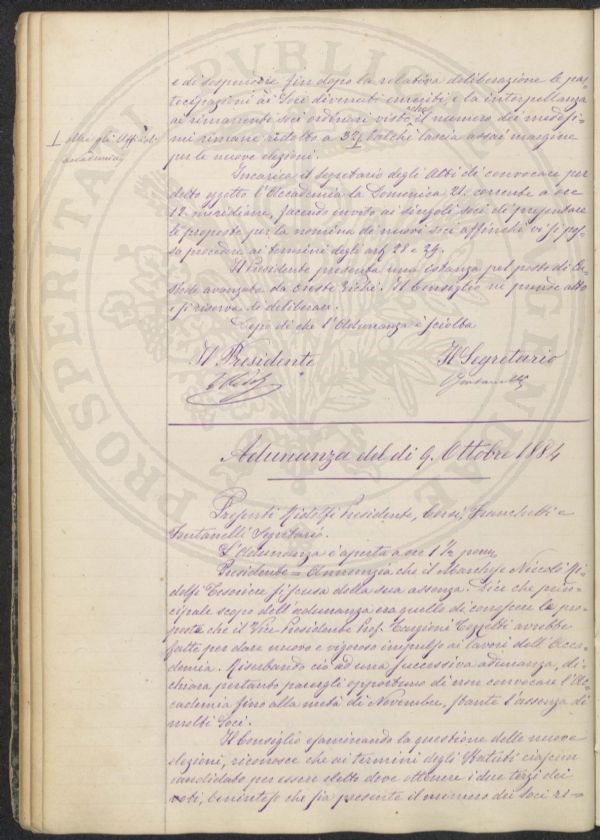 e di sospendere fin dopo la relativa deliberazione le par-
tecipazioni ai Soci divenuti emeriti e la interpellanza
ai rimanenti soci ordinari visto che il numero dei medesi-
mi rimane ridotto a 32 talchè lascia assai margine
per le nuove elezioni.
Incarica il Segretario degli Atti di convocare per
detto oggetto l'Accademia la Domenica 21 corrente a ore
12 meridiane, facendo invito ai singoli soci di presentare
le proposte per la nomina di nuovi soci affinchè vi si pos-
sa procedere ai termini degli art. 28 e 29.
Il Presidente presenta una istanza pel posto di Cu-
stode avanzata da Oreste Zichi. Il Consiglio ne prende atto
e si riserva di deliberare.
Dopo di che l'Adunanza è sciolta
Il Presidente Il Segretario
Adunanza del dì 9 Ottobre 1884
Presenti Ridolfi Presidente, Corsi, Franchetti e
Fontanelli Segretario.
L'Adunanza è aperta a ore 1 1/2 pom.
Presidente = Annunzia che il Marchese Niccolò Ri-
dolfi Tesoriere si scusa della sua assenza. Dice che prin-
cipale scopo dell'adunanza era quello di conoscere le pro-
poste che il Vice Presidente Prof. Targioni Tozzetti avrebbe
fatte per dare nuovo e vigoroso impulso ai lavori dell'Acca-
demia. Riserbando ciò ad una successiva adunanza, di-
chiara pertanto parergli opportuno di non convocare l'Ac-
cademia fino alla metà di Novembre, stante l'assenza di
molti Soci.
Il Consiglio esaminando la questione delle nuove
elezioni, riconosce che ai termini degli Statuti ciascun
candidato per essere eletto deve ottenere i due terzi dei
voti, beninteso che sia presente il numero dei Soci ri-